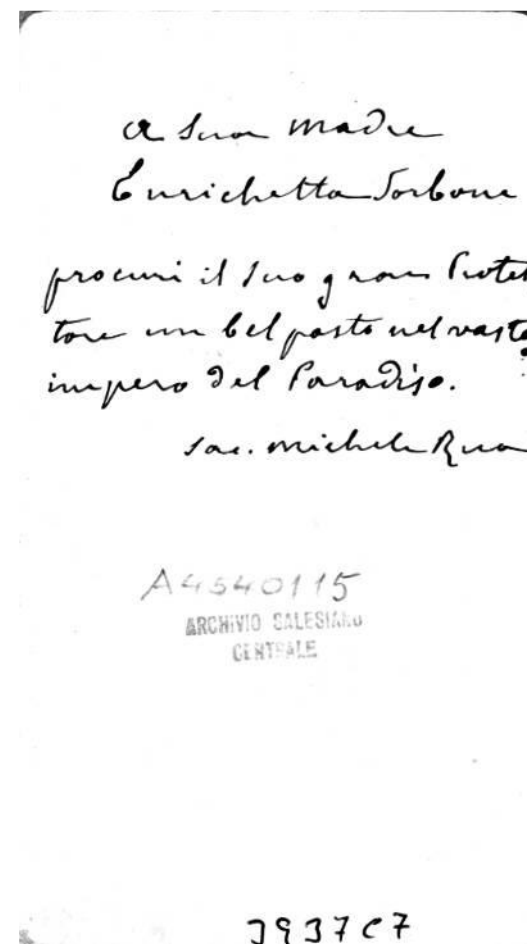 A Suor Madre
Enrichetta Sorbone
procuri il suo gran Protet
tore un bel posto nel vasto
impero del Paradiso.
Sac. Michele Rua
A4540115
ARCHIVIO SALESIANO
CENTRALE
3937C7